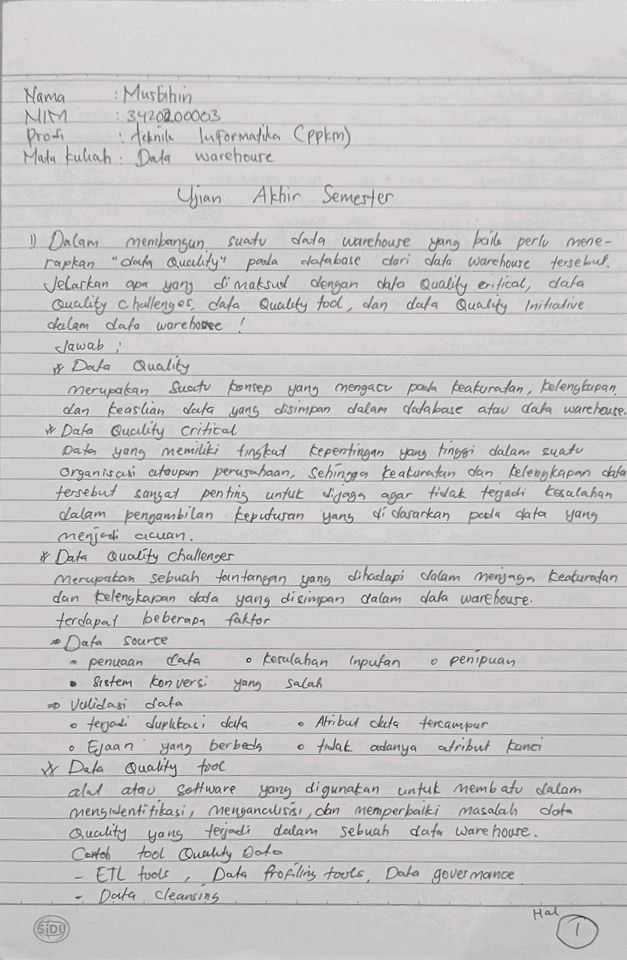 Nama : Musbihin
NIM : 3420200003
Prodi : teknik Informatika (ppkm)
Mata kuliah : Data warehouse
Ujian Akhir Semester
1) Dalam membangun suatu data warehouse yang baik perlu mene-
rapkan "data Quality" pada database dari data warehouse tersebut.
Jelaskan apa yang dimaksud dengan data Quality critical, data
Quality challenges, data Quality tool, dan data Quality Initiative
dalam data warehouse !
Jawab :
* Data Quality
merupakan Suatu konsep yang mengacu pada keakuratan, kelengkapan,
dan keaslian data yang disimpan dalam database atau data warehouse.
* Data Quality Critical
Data yang memiliki tingkat kepentingan yang tinggi dalam suatu
organisasi ataupun perusahaan, sehingga keakuratan dan kelengkapan data
tersebut sangat penting untuk dijaga agar tidak terjadi kesalahan
dalam pengambilan keputusan yang didasarkan pada data yang
menjadi acuan.
* Data Quality Challenges
merupakan sebuah tantangan yang dihadapi dalam menjaga keakuratan
dan kelengkapan data yang disimpan dalam data warehouse.
terdapat beberapa faktor
⇒ Data source
• penuaan data ∘ kesalahan Inputan ∘ penipuan
• Sistem konversi yang salah
⇒ Validasi data
∘ terjadi duplikaci data ∘ Atribut data tercampur
∘ Ejaan yang berbeda ∘ tidak adanya atribut kunci
* Data Quality tool
alat atau Software yang digunakan untuk membatu dalam
mengidentifikasi, menganalisisi, dan memperbaiki masalah data
Quality yang terjadi dalam sebuah data warehouse.
Contoh tool Quality Data
- ETL tools, Data Profiling tools, Data governance
- Data cleansing
SiDU
Hal 1